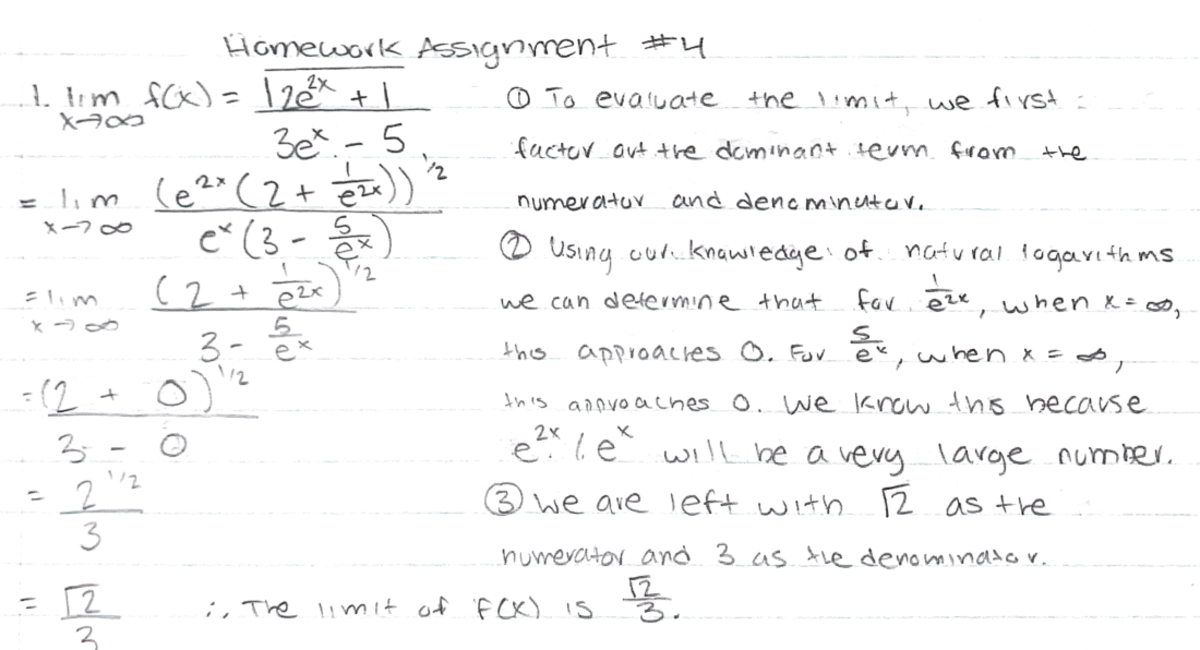 Homework Assignment #4
1. lim x→∞ f(x) = √(2e^2x + 1) / (3e^x - 5)
= lim x→∞ (e^2x (2 + 1/e^2x))^1/2 / e^x (3 - 5/e^x)
= lim x→∞ (2 + 1/e^2x)^1/2 / 3 - 5/e^x
= (2 + 0)^1/2 / 3 - 0
= 2^1/2 / 3
= √2 / 3
① To evaluate the limit, we first :
factor out the dominant term from the
numerator and denominator.
② Using our knowledge of natural logarithms
we can determine that for 1/e^2x, when x = ∞,
this approaches 0. For 5/e^x, when x = ∞,
this approaches 0. We know this because
e^2x / e^x will be a very large number.
③ We are left with √2 as the
numerator and 3 as the denominator.
∴ The limit of f(x) is √2/3.